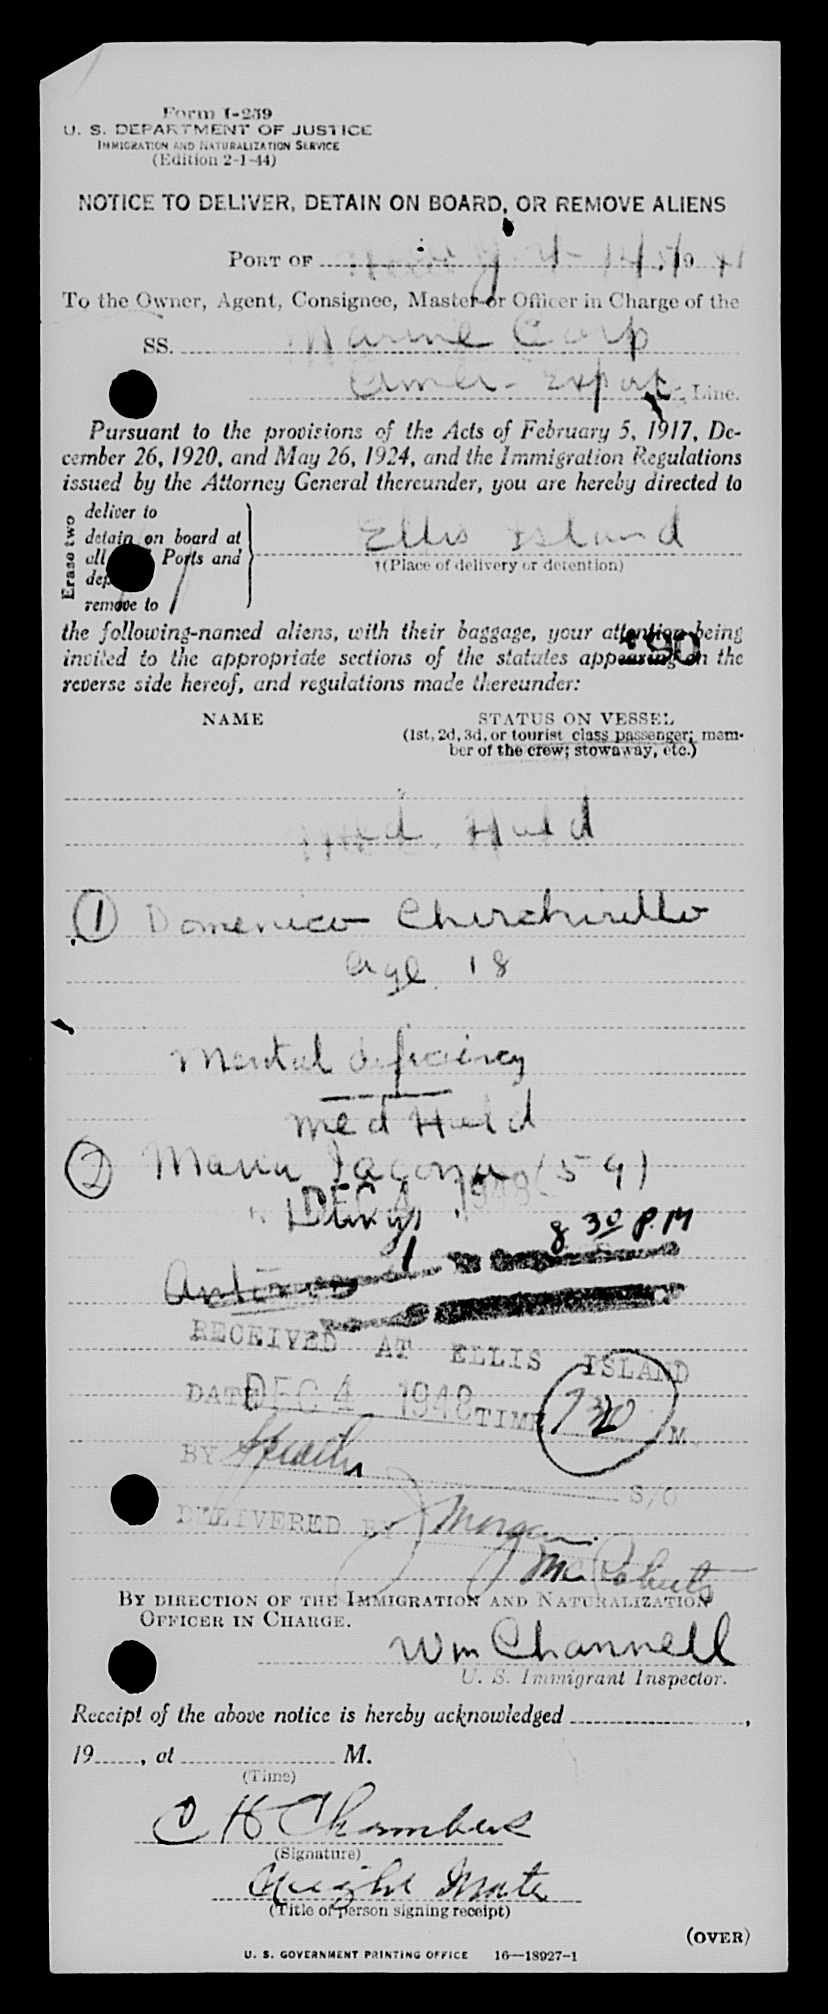 Form I-259
U. S. DEPARTMENT OF JUSTICE
IMMIGRATION AND NATURALIZATION SERVICE
(Edition 2-1-44)
NOTICE TO DELIVER, DETAIN ON BOARD, OR REMOVE ALIENS
PORT OF
To the Owner, Agent, Consignee, Master or Officer in Charge of the
SS. Marine Carp
Amer. Export Line.
Pursuant to the provisions of the Acts of February 5, 1917, De-
cember 26, 1920, and May 26, 1924, and the Immigration Regulations
issued by the Attorney General thereunder, you are hereby directed to
Erase two
deliver to
detain on board at
all Ports and
remove to
Ellis Island
†(Place of delivery or detention)
the following-named aliens, with their baggage, your attention being
invited to the appropriate sections of the statutes appearing on the
190
reverse side hereof, and regulations made thereunder:
NAME STATUS ON VESSEL
(1st, 2d, 3d, or tourist class passenger; mem-
ber of the crew; stowaway, etc.)
Med. Held
1 Domenico
age 18
Mental deficiency
Med Held
2 Maria (59)
DEC 4 1948
8 30 P.M
RECEIVED AT ELLIS ISLAND
DATE DEC 4 1948 TIME 730 M.
BY S/O
DELIVERED BY J Morgan
McRoberts
BY DIRECTION OF THE IMMIGRATION AND NATURALIZATION
OFFICER IN CHARGE.
Wm Channell
U. S. Immigrant Inspector.
Receipt of the above notice is hereby acknowledged ,
19 , at M.
(Time)
C H Chambers
(Signature)
Night Mate
(Title of person signing receipt)
(OVER)
U. S. GOVERNMENT PRINTING OFFICE 16—18927-1